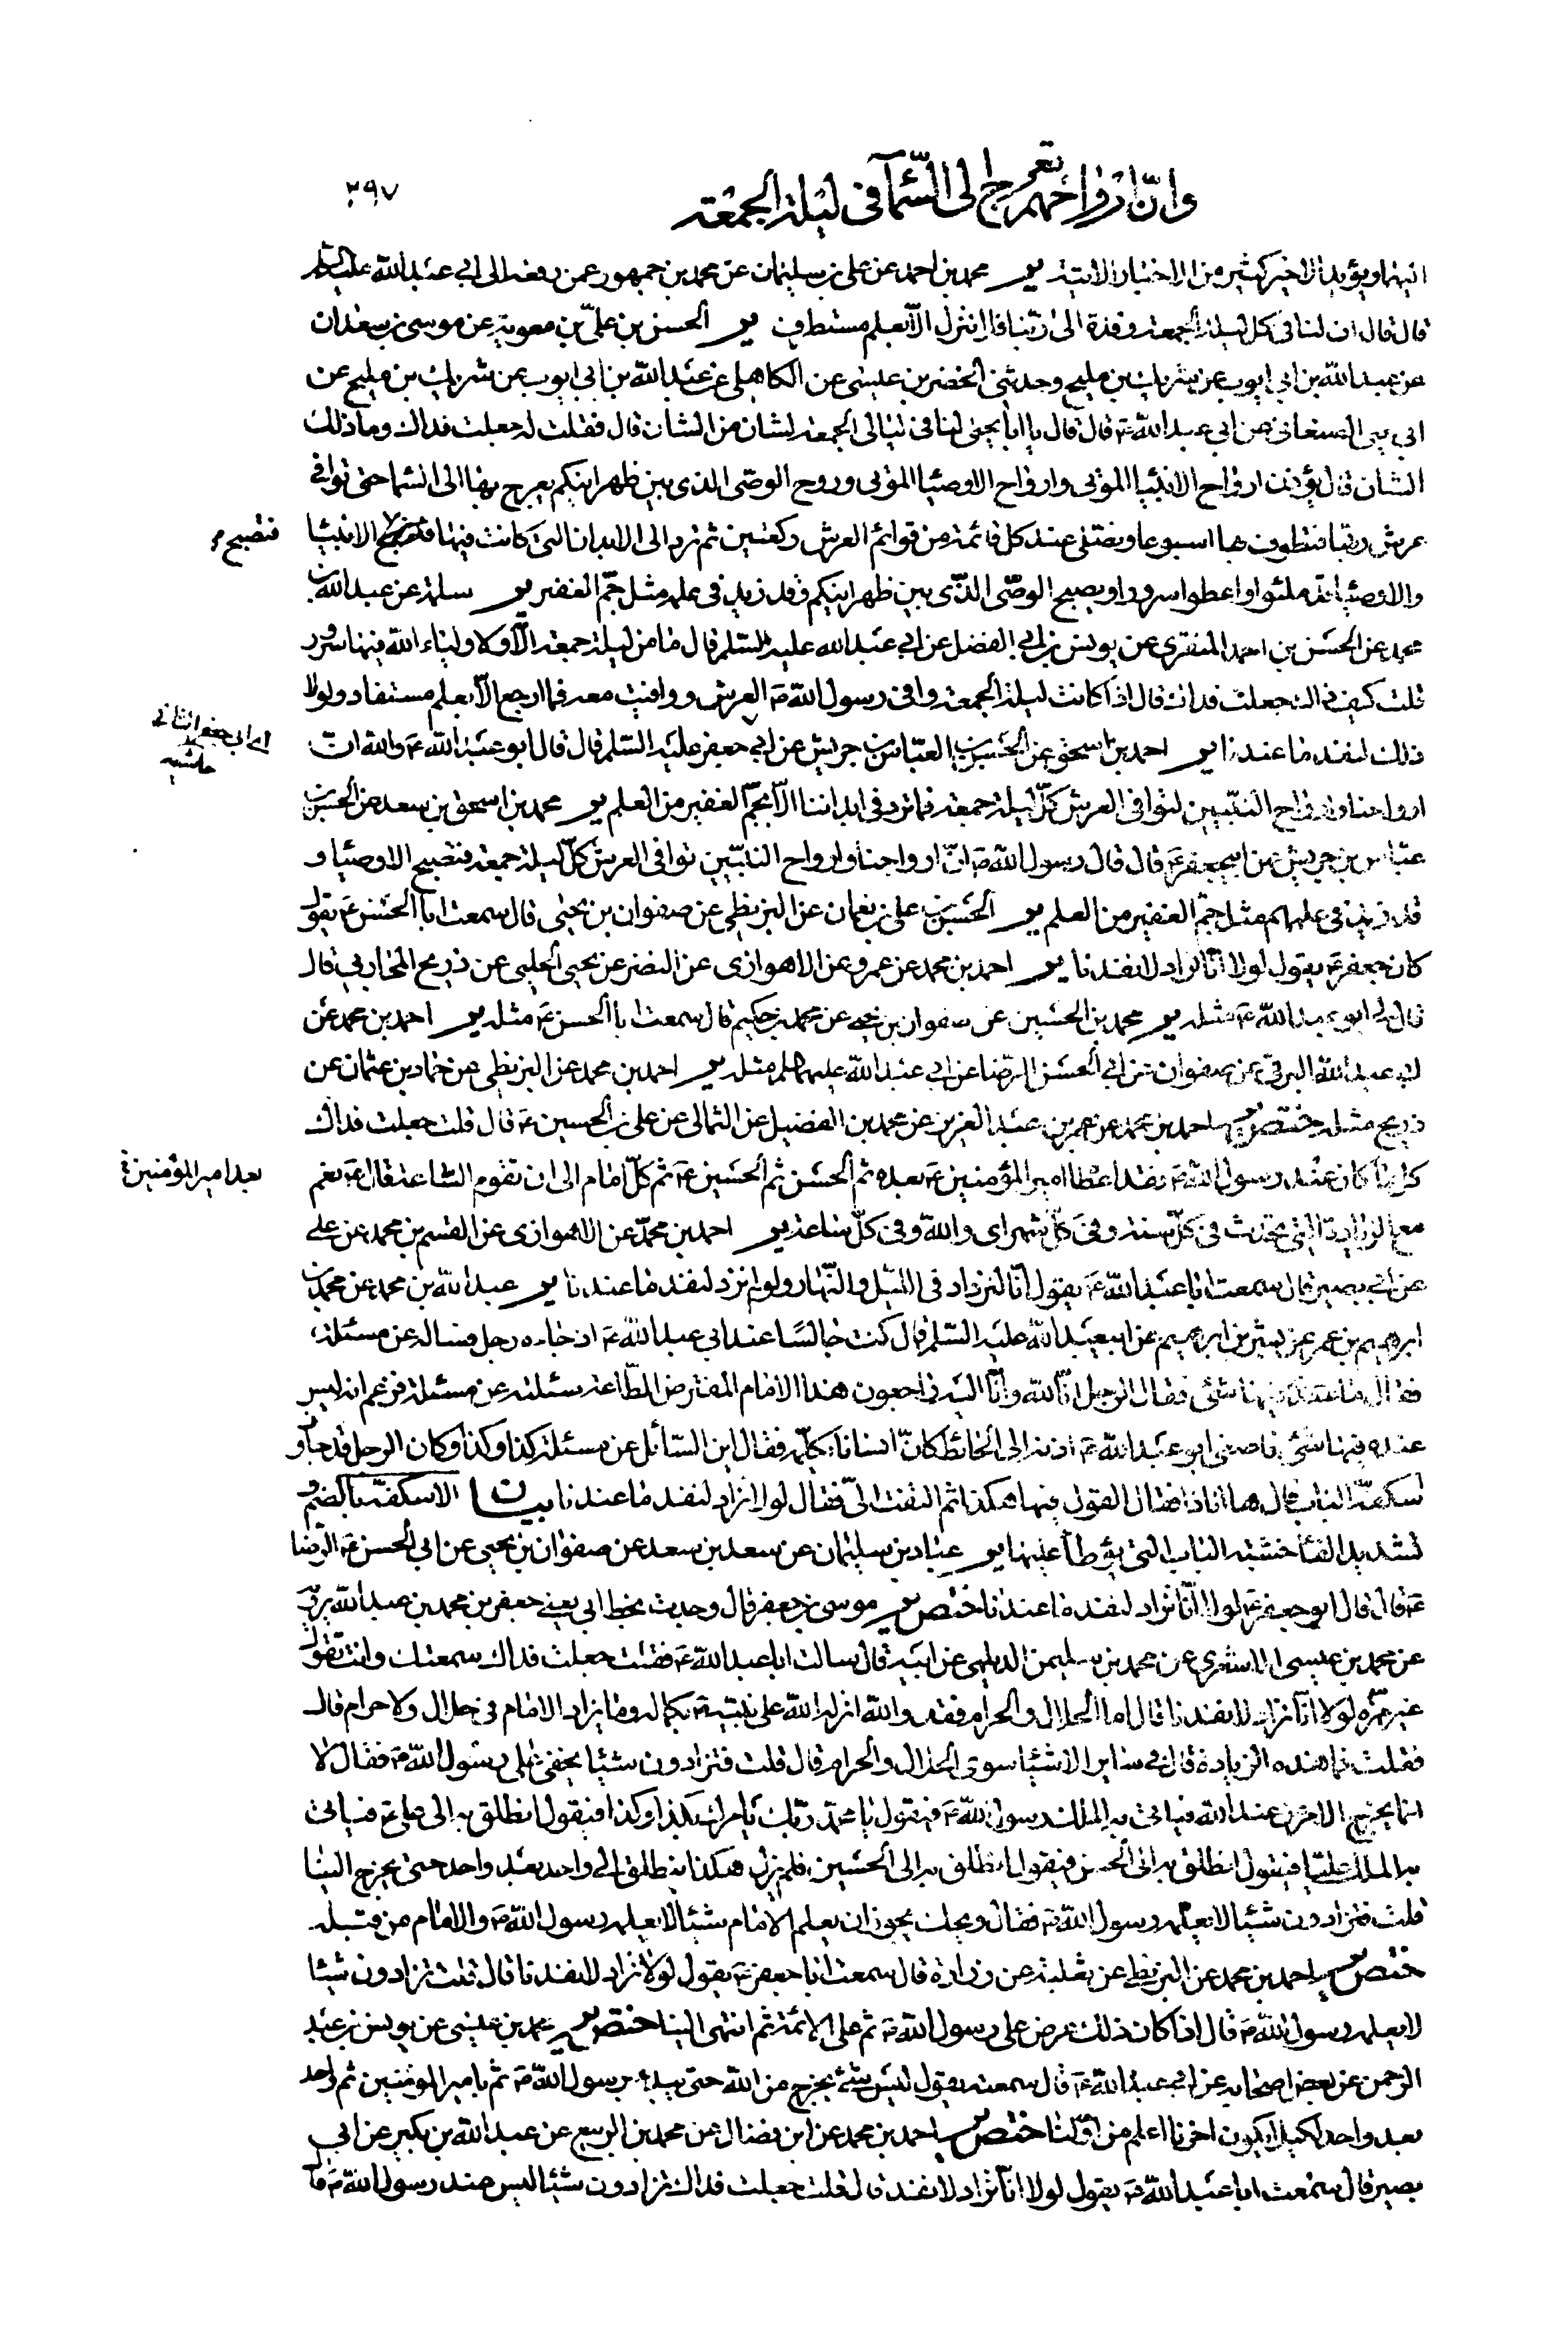 وانّ ارواحهم تعرج الى السّمآء فى ليلة الجمعة
٣٩٧
اليها ويؤيد الاخير كثير من الاخبار الاتية ير محمد بن احمد عن على بن سليمان عن محمد بن جمهور عمن رفعه الى ابى عبد الله عليه السلم
قال قال ان لنا فى كل ليلة الجمعة وفدة الى ربّنا فلا ننزل الّا بعلم مستطرف ير الحسن بن علىّ بن معوية عن موسى بن سعدان
عن عبد الله بن ابى ايوب عن شريك بن مليح وحدثنى الخضر بن عيسى عن الكاهلى عن عبد الله بن ابى ايوب عن شريك بن مليح عن
ابى يحيى الصنعانى عن ابى عبد الله ع قال قال يا ابا يحيى لنا فى ليالى الجمعة لشان من الشان قال فقلت له جعلت فداك وما ذلك
الشان قال يؤذن ارواح الانبياء الموتى وارواح الاوصياء الموتى وروح الوصّى الذى بين ظهرانيكم يعرج بها الى السماء حتى توافى
عرش ربّها فتطوف بها اسبوعا وتصلى عند كل قائمة من قوائم العرش ركعتين ثم ترد الى الابدان التى كانت فيها فتصبح الانبياء
فتصبح
والاوصياء قد ملئوا واعطوا سرورا ويصبح الوصّى الذّى بين ظهرانيكم وقد زيد فى علمه مثل جمّ الغفير ير سلمة عن عبد الله بن
محمد عن الحسن بن احمد المنقرى عن يونس بن ابى الفضل عن ابى عبد الله عليه السّلم قال ما من ليلة جمعة الّا ولاولياء الله فيها سرور
قلت كيف ذلك جعلت فداك قال اذا كانت ليلة الجمعة وافى رسول الله ص العرش ووافيت معه فما ارجع الّا بعلم مستفاد ولولا
اى ابى جعفر الثانى
ذلك لنفد ما عندنا ير احمد بن اسحق عن الحسن بن العبّاس بن جريش عن ابى جعفر عليه السّلم قال قال ابو عبد الله ع والله ان
ارواحنا وارواح النبيّين لتوافى العرش كلّ ليلة جمعة فما ترد فى ابداننا الّا بجمّ الغفير من العلم ير محمد بن اسحق بن سعد عن الحسن بن
عبّاس بن جريش عن ابيجعفر ع قال قال رسول الله ص انّ ارواحنا وارواح النبيّين توافى العرش كلّ ليلة جمعة فتصبح الاوصياء و
قد زيد فى علمهم مثل جمّ الغفير من العلم ير الحسن بن على بن نعمان عن البزنطى عن صفوان بن يحيى قال سمعت ابا الحسن ع يقول
كان جعفر ع يقول لولا انّا نزاد لانفدنا ير احمد بن محمد عن عمرو عن الاهوازى عن النضر عن يحيى الحلبى عن ذريح المحاربى قال
قال لى ابو عبد الله ع مثله ير محمد بن الحسين عن صفوان بن يحيى عن محمد بن حكيم قال سمعت ابا الحسن ع مثله ير احمد بن محمد عن
ابى عبد الله البرقى عن صفوان عن ابى الحسن الرّضا عن ابى عبد الله عليهما السلم مثله ير احمد بن محمد عن البزنطى عن حماد بن عثمان عن
ذريح مثله ختص ير احمد بن محمد عن عمر بن عبد العزيز عن محمد بن الفضيل عن الثمالى عن على بن الحسين ع قال قلت جعلت فداك
كل ما كان عند رسول الله ص فقد اعطاه امير المؤمنين ع بعده ثم الحسن ثم الحسين ع ثم كلّ امام الى ان تقوم السّاعة قال ع نعم
بعد امير المؤمنين
مع الزيادة التى تحدث فى كلّ سنة وفى كلّ شهر اى والله وفى كلّ ساعة ير احمد بن محمّد عن الاهوازى عن القسم بن محمد عن على
عن ابى بصير قال سمعت ابا عبد الله ع يقول انّا لنزداد فى الليل والنّهار ولو لم نزد لنفد ما عندنا ير عبد الله بن محمد عن محمد بن
ابرهيم بن عمر عن بشر بن ابرهيم عن ابيعبد الله عليه السّلم قال كنت جالسًا عند ابى عبد الله ع اذ جاءه رجل فساله عن مسئلة
فقال ما عندى فيها شئ فقال الرجل انّا لله وانّا اليه راجعون هذا الامام المفترض الطّاعة سئلته عن مسئلة فزعم انه ليس
عنده فيها شئ فاصغى ابو عبد الله ع اذنه الى الحائط كانّ انسانا يكلّمه فقال اين السّائل عن مسئلة كذا وكذا وكان الرجل قد جاوز
اسكفّة الباب قال ها انا ذا فقال القول فيها هكذا ثم التفت الىّ فقال لولا نزاد لنفد ما عندنا بيان الاسكفّة بالضمّ و
تشديد الفاء خشبة الباب التى يوطأ عليها ير عباد بن سليمان عن سعد بن سعد عن صفوان بن يحيى عن ابى الحسن ع الرّضا
ع قال قال ابو جعفر ع لولا انّا نزاد لنفد ما عندنا ختص ير موسى بن جعفر قال وجدت بخط ابى يعنى جعفر بن محمد بن عبد الله يرويه
عن محمد بن عيسى الاشعرى عن محمد بن سليمن الديلمى عن ابيه قال سالت ابا عبد الله ع فقلت جعلت فداك سمعتك وانت تقول
غير مرّة لولا انّا نزاد لانفدنا قال اما الحلال والحرام فقد والله انزله الله على نبيّه ص بكماله وما يزاد الامام فى حلال ولا حرام قال
فقلت فما هذه الزيادة قال فى ساير الاشياء سوى الحلال والحرام قال قلت فتزادون شيئا يخفى على رسول الله ص فقال لا
انما يخرج الامر من عند الله فياتى به الملك رسول الله ص فيقول يا محمد ربّك يامرك بكذا وكذا فيقول انطلق به الى على ع فياتى
به الملك عليّا فيقول انطلق به الى الحسن فيقول انطلق به الى الحسين فلم يزل هكذا ينطلق الى واحد بعد واحد حتى يخرج الينا
قلت فتزادون شيئا لا يعلمه رسول الله ص فقال ويحك يجوز ان يعلم الامام شيئا لا يعلمه رسول الله ص والامام من قبله
ختص ير احمد بن محمد عن البزنطى عن ثعلبة عن زرارة قال سمعت ابا جعفر ع يقول لولا نزاد لانفدنا قال قلت تزادون شيئا
لا يعلمه رسول الله ص قال اذا كان ذلك عرض على رسول الله ص ثم على الائمة ثم انتهى الينا ختص ير محمد بن عيسى عن يونس بن عبد
الرحمن عن بعض اصحابه عن ابى عبد الله ع قال سمعته يقول ليس شئ يخرج من الله حتى يبدء برسول الله ص ثم بامير المومنين ثم واحد
بعد واحد لكيلا يكون اخرنا اعلم من اوّلنا ختص ير احمد بن محمد عن ابن فضال عن محمد بن الربيع عن عبد الله بن بكير عن ابى
بصير قال سمعت ابا عبد الله ع يقول لولا انّا نزاد لانفدنا قال قلت جعلت فداك تزادون شيئا ليس عند رسول الله ص قال